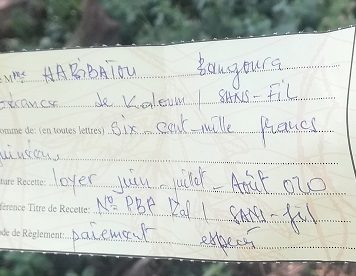 Mme HABIBATOU Bangoura
érance de Kaloum / SANS-FIL
omme de: (en toutes lettres) six-cent-mille francs
guinéens
ture Recette: loyer juin-juillet-Août 020
férence Titre de Recette: N° PBP Kal / SANS-fil
de de Règlement: paiement espece